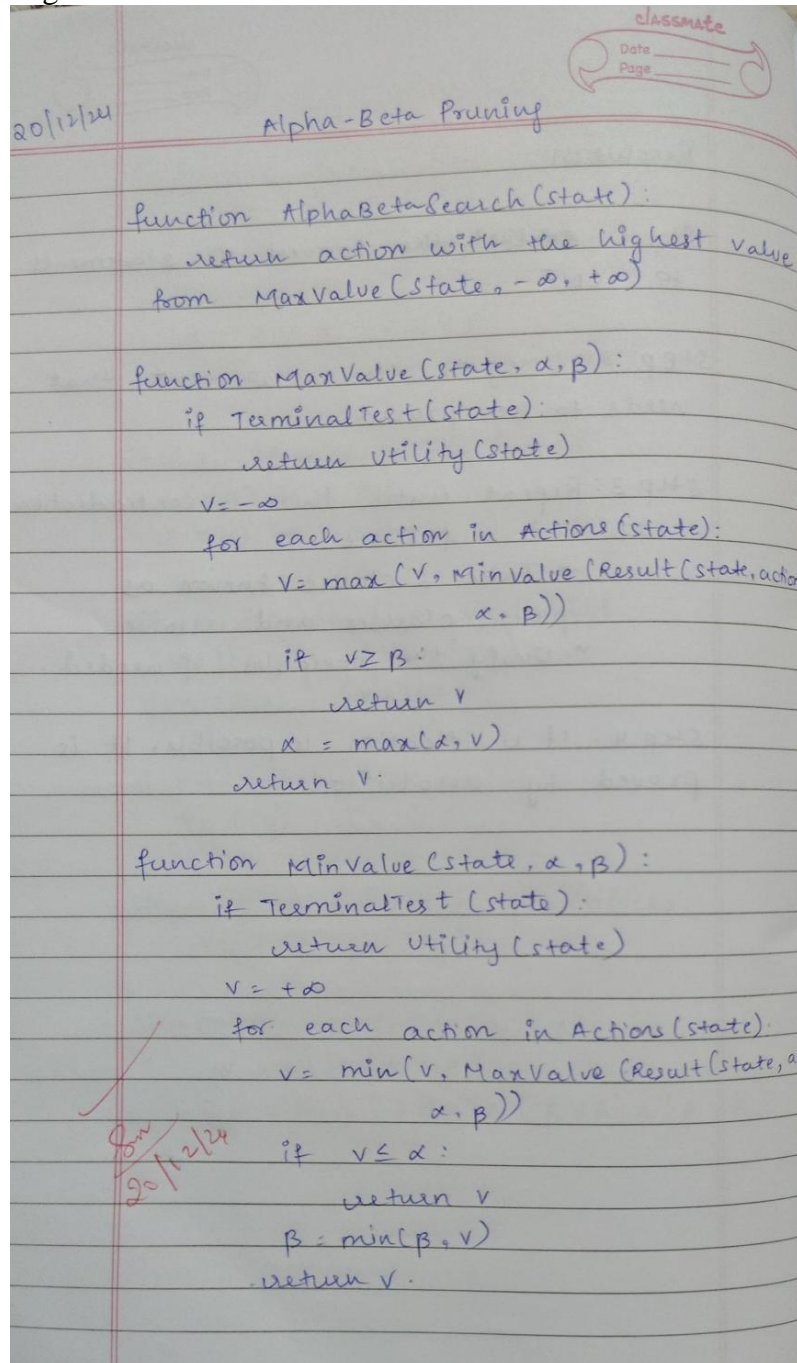 classmate
Date
Page
20/12/24
Alpha-Beta Pruning
function AlphaBetaSearch(state):
return action with the highest value
from MaxValue(state, -∞, +∞)
function MaxValue(state, α, β):
if TerminalTest(state):
return Utility(state)
v = -∞
for each action in Actions(state):
v = max(v, MinValue(Result(state, action
α, β))
if v ≥ β:
return v
α = max(α, v)
return v.
function MinValue(state, α, β):
if TerminalTest(state):
return Utility(state)
v = +∞
for each action in Actions(state):
v = min(v, MaxValue(Result(state, a
α, β))
if v ≤ α:
20/12/24
return v
β = min(β, v)
return v.